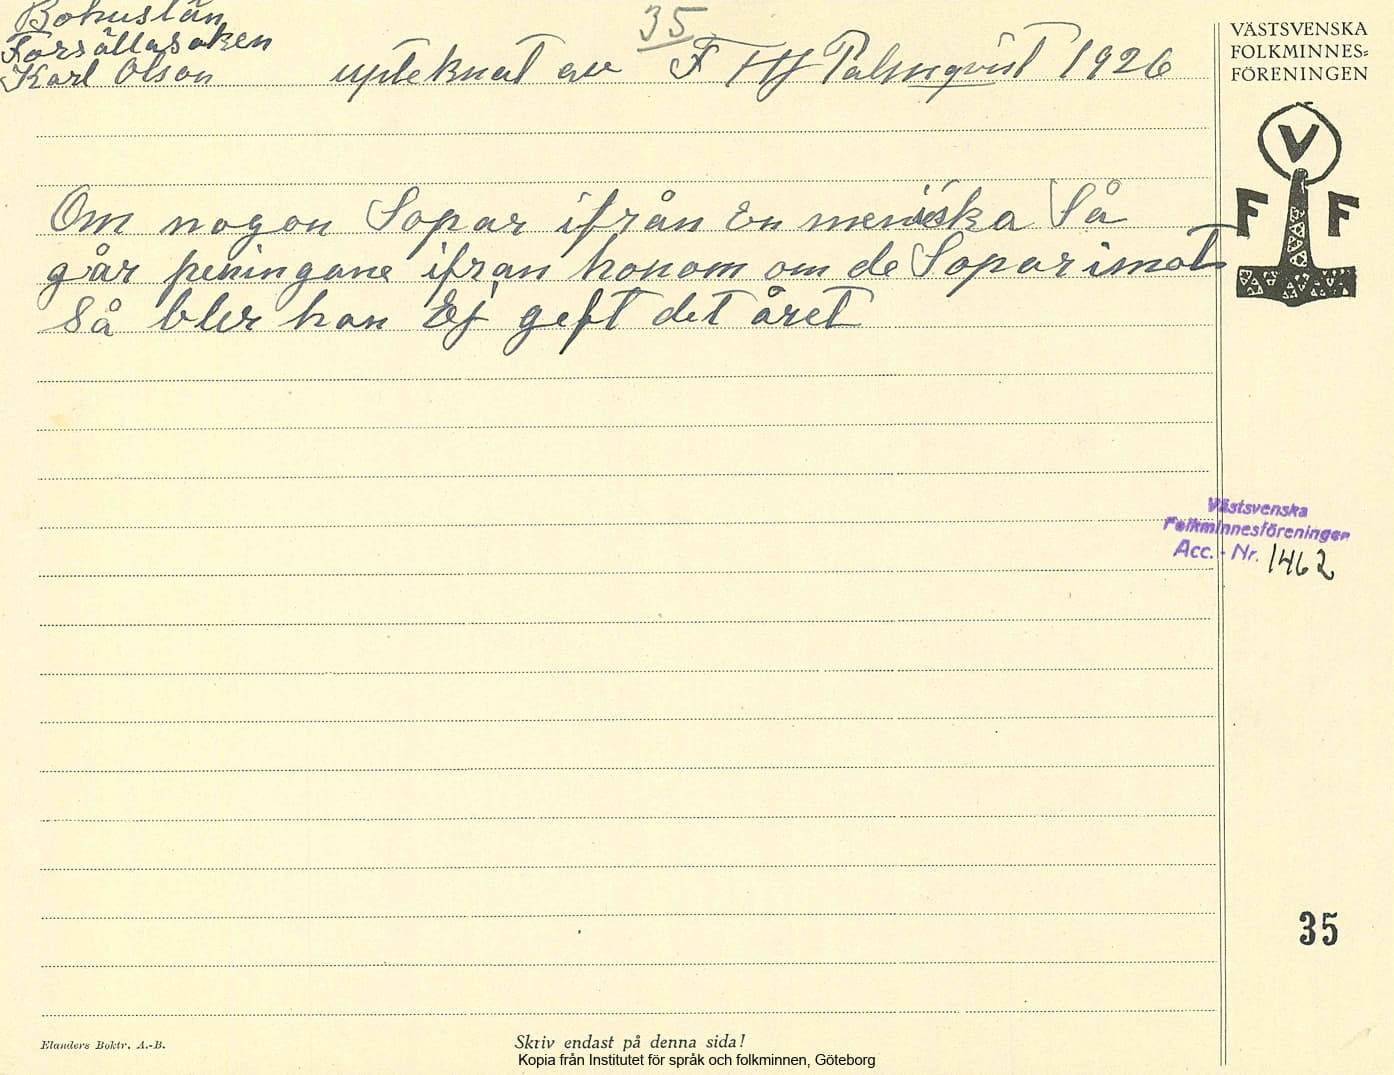 35
Bohuslän
Forsällasoken
Karl Olson upteknat av F Hj Palmqvist 1926
VÄSTSVENSKA
FOLKMINNES-
FÖRENINGEN
V
F F
Om nogon Sopar ifrån En meniska Så
går peningane ifran honom om de Sopar imot
Så bler han Ej geft det året
Västsvenska
Folkminnesföreningen
Acc. - Nr. 1462
35
Elanders Boktr. A.-B.
Skriv endast på denna sida!
Kopia från Institutet för språk och folkminnen, Göteborg